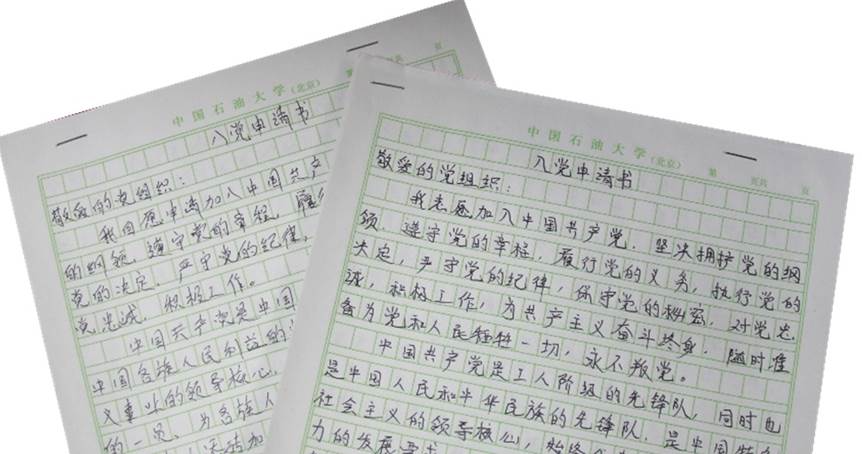 中国石油大学(北京) 第
页共 页
入党申请书
敬爱的党组织:
我自愿申请加入中国共产
的纲领,遵守党的章程,履行
党的决定,严守党的纪律,
党忠诚,积极工作。
中国共产党是中国
中国各族人民利益的
义事业的领导核心,
的一员,为各族人
中国石油大学(北京) 第 页共 页
入党申请书
敬爱的党组织:
我志愿加入中国共产党,坚决拥护党的纲
领,遵守党的章程,履行党的义务,执行党的
决定,严守党的纪律,保守党的秘密,对党忠
诚,积极工作,为共产主义奋斗终身,随时准
备为党和人民牺牲一切,永不叛党。
中国共产党是工人阶级的先锋队,同时也
是中国人民和中华民族的先锋队,是中国特色
社会主义的领导核心,始终
力的发展要求